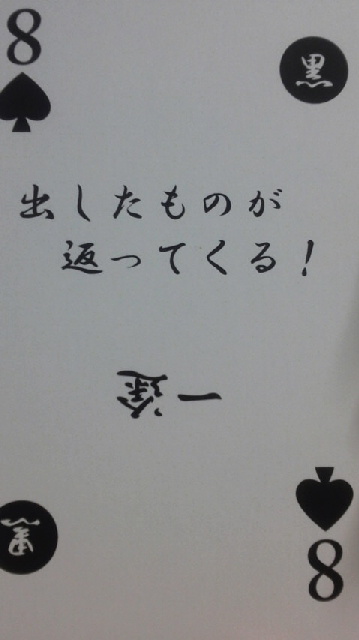 8
黒
出したものが
返ってくる!
一途
黒
8